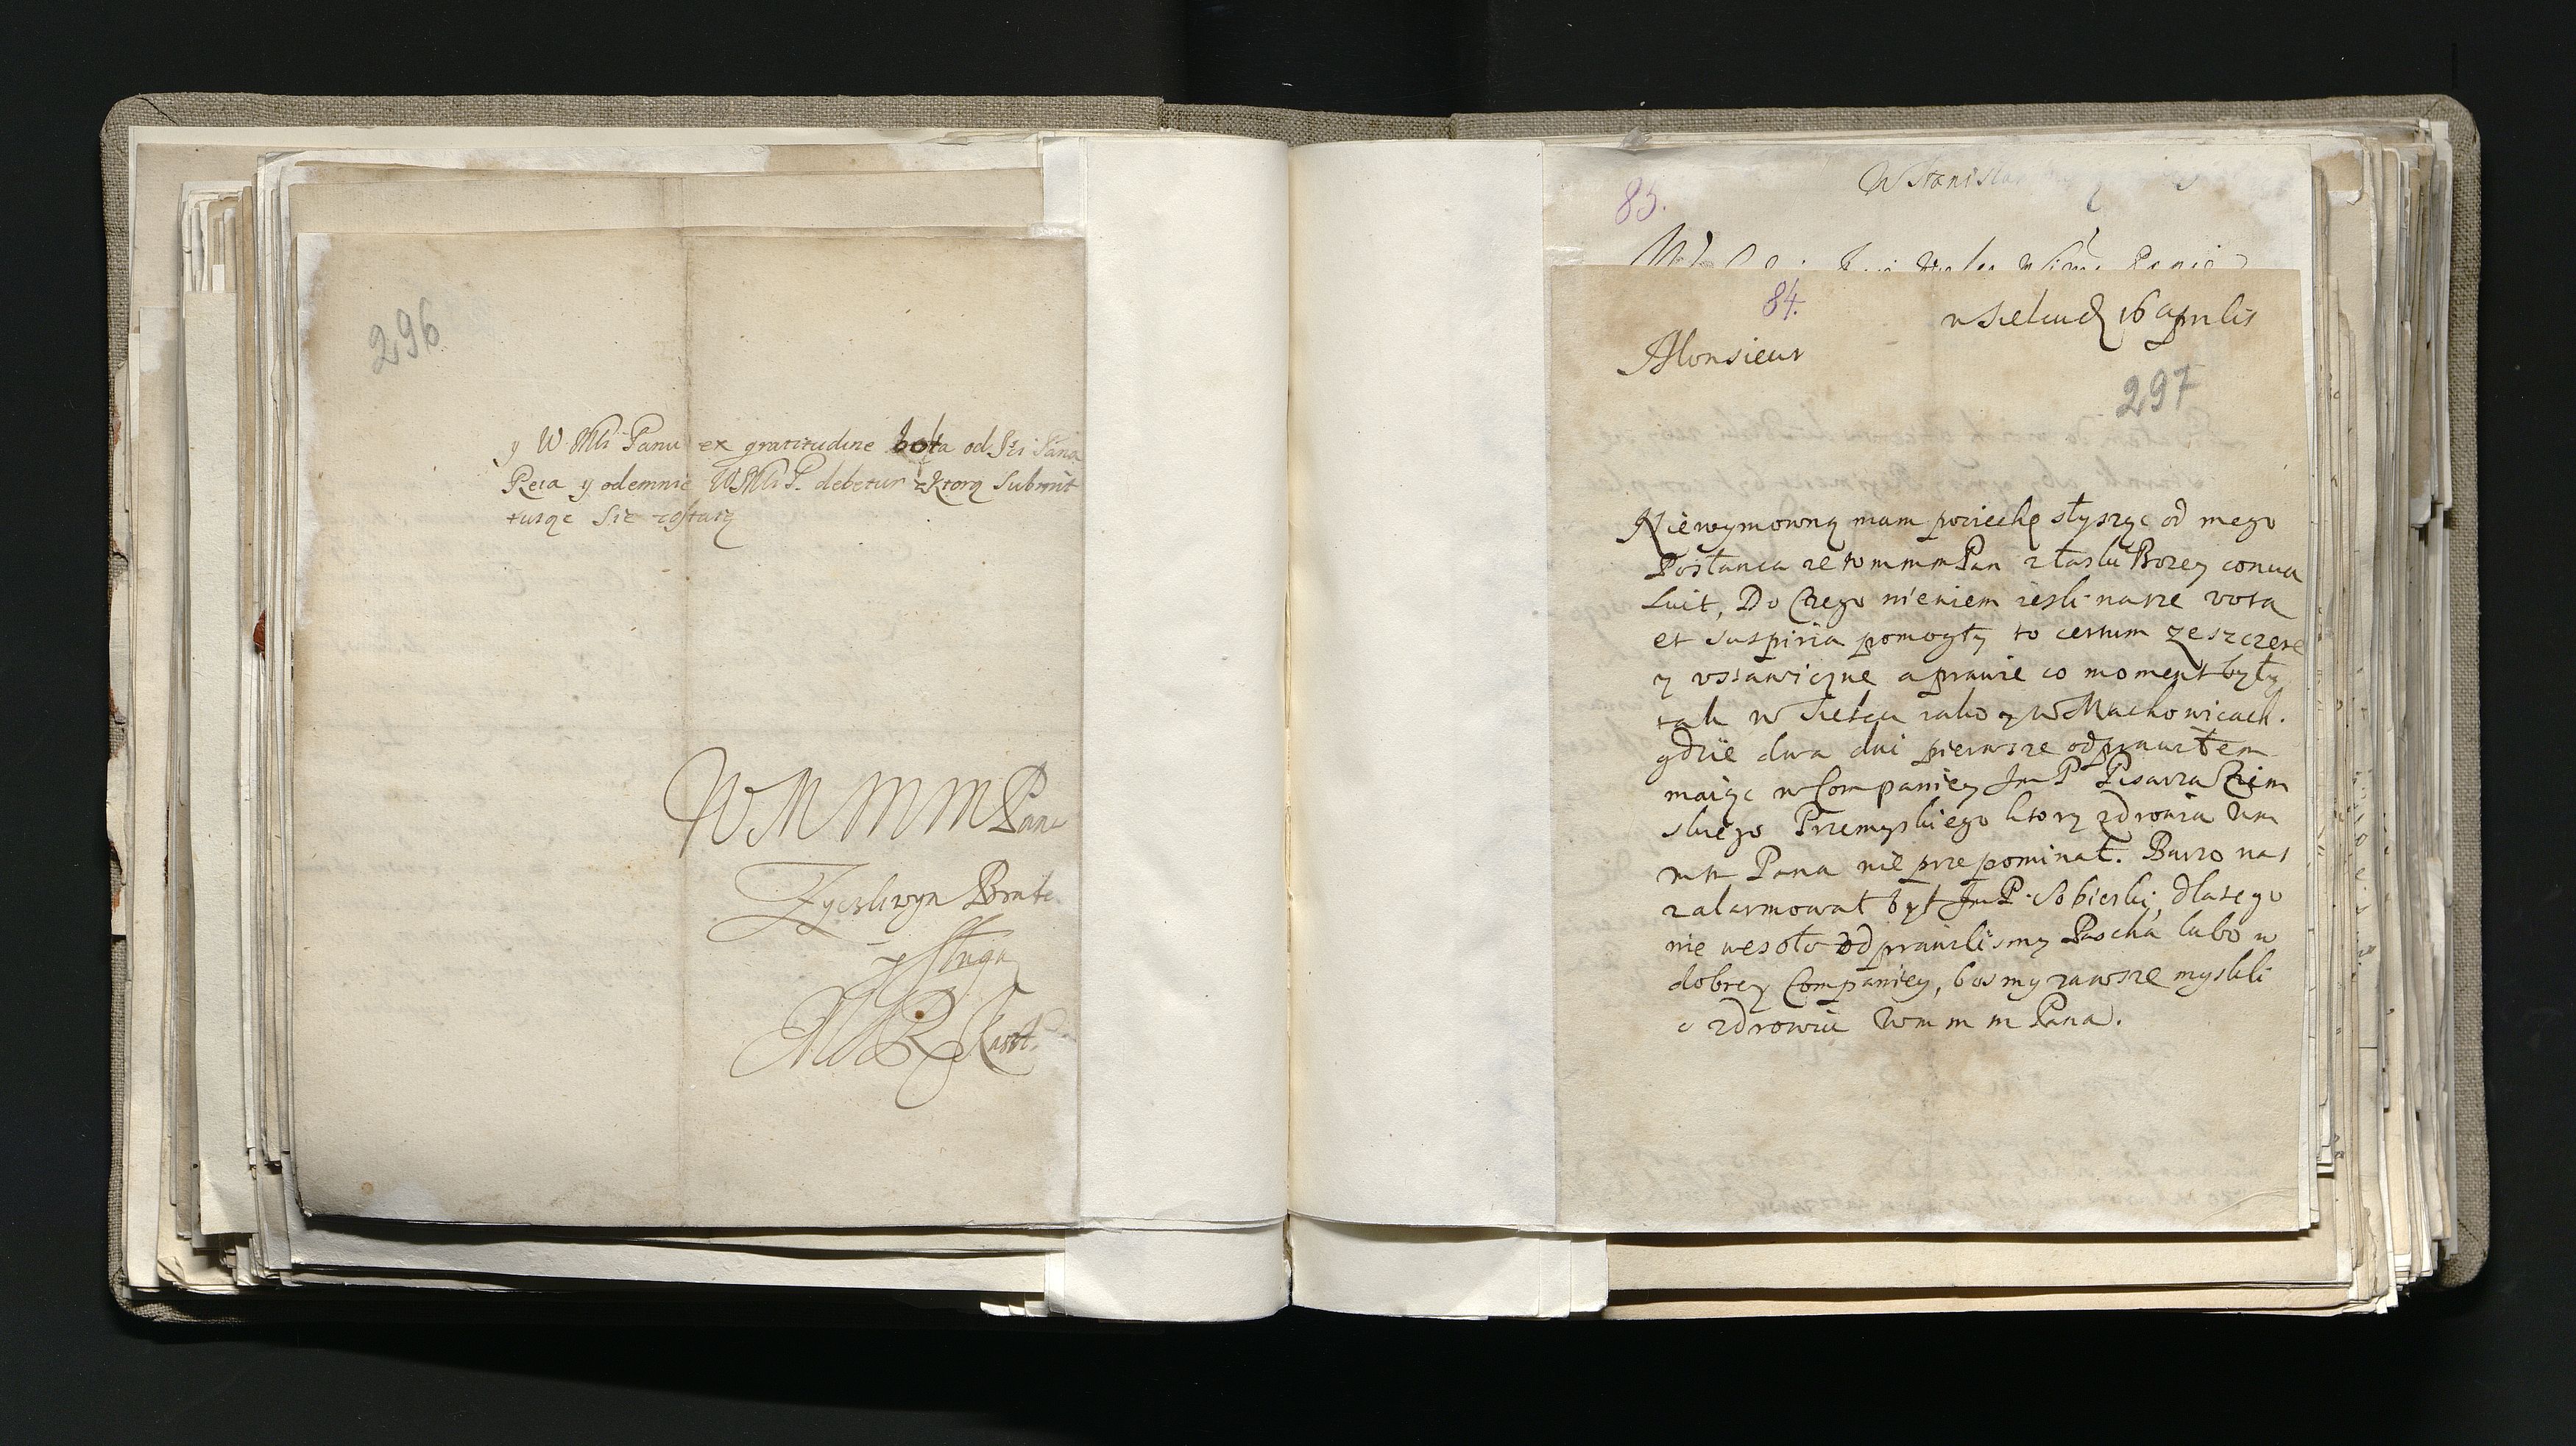 296
y W Mći Panu ex gratitudine od
Reia y odemnie WMći P. debetur z Ktorą Submit
tuiąc Się zostaię
W M M M Pana
Zyczliwyn Brate
y Sługą
Kaszt.
W Stanisła
83.
84.
16 aprilis
Monsieur
297
Niewymowną mam pociechę słysząc od mego
Posłanca ze to m m m Pan z łaski Bozey conua
luit, Do Czego niewiem iesli nasze vota
et suspiria pomogły to certum ze szczere
y vstawiczne a prawie co moment były
tak w iako y w Machowicach.
gdzie dwa dni pierwsze odprawiłem
maiąc w Companiey Im P Pisarza Ziem
skiego Przemyskiego ktory zdrowia Wm
m m Pana nie przepominał. Barzo nas
zalarmował był Im P Sobieski, dlatego
nie wesoło odprawilismy Pascha lubo w
dobrey Companiey, bosmy zawsze mysleli
o zdrowiu Wm m m Pana.